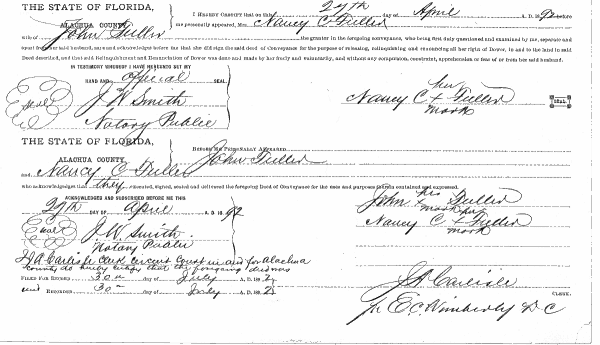 THE STATE OF FLORIDA,
ALACHUA COUNTY.
I HEREBY CERTIFY that on this 29th day of April A. D. 1892 before
me personally appeared, Mrs. Nancy C. Fuller
wife of John Fuller the grantor in the foregoing conveyance, who being first duly questioned and examined by me, separate and
apart from her said husband, and was acknowledged before me that she did sign the said deed of Conveyance for the purpose of releasing, relinquishing and renouncing all her rights of Dower, in and to the land in said
Deed described, and that said Relinquishment and Renunciation of Dower was done and made by her freely and voluntarily, and without any compulsion, constraint, apprehension or fear of or from her said husband.
IN TESTIMONY WHEREOF I HAVE HEREUNTO SET MY
HAND AND official SEAL
Seal J W Smith
Notary Public
her
Nancy C + Fuller SEAL
mark
THE STATE OF FLORIDA,
ALACHUA COUNTY.
BEFORE ME PERSONALLY APPEARED
John Fuller
and Nancy C Fuller
who acknowledged that they executed, signed, sealed and delivered the foregoing Deed of Conveyance for the uses and purposes therein contained and expressed.
ACKNOWLEDGED AND SUBSCRIBED BEFORE ME THIS
29th DAY OF April A. D. 1892
Seal J. W. Smith
Notary Public
his
John + Fuller
mark her
Nancy C + Fuller
mark
I J A Carlisle Clerk Circuit Court in and for Alachua
County do hereby certify that the foregoing deed was
FILED FOR RECORD 30th day of July A. D. 189
and RECORDED 30th day of July A. D. 189
J A Carlisle
CLERK.
pr E. C. Wimberly D C